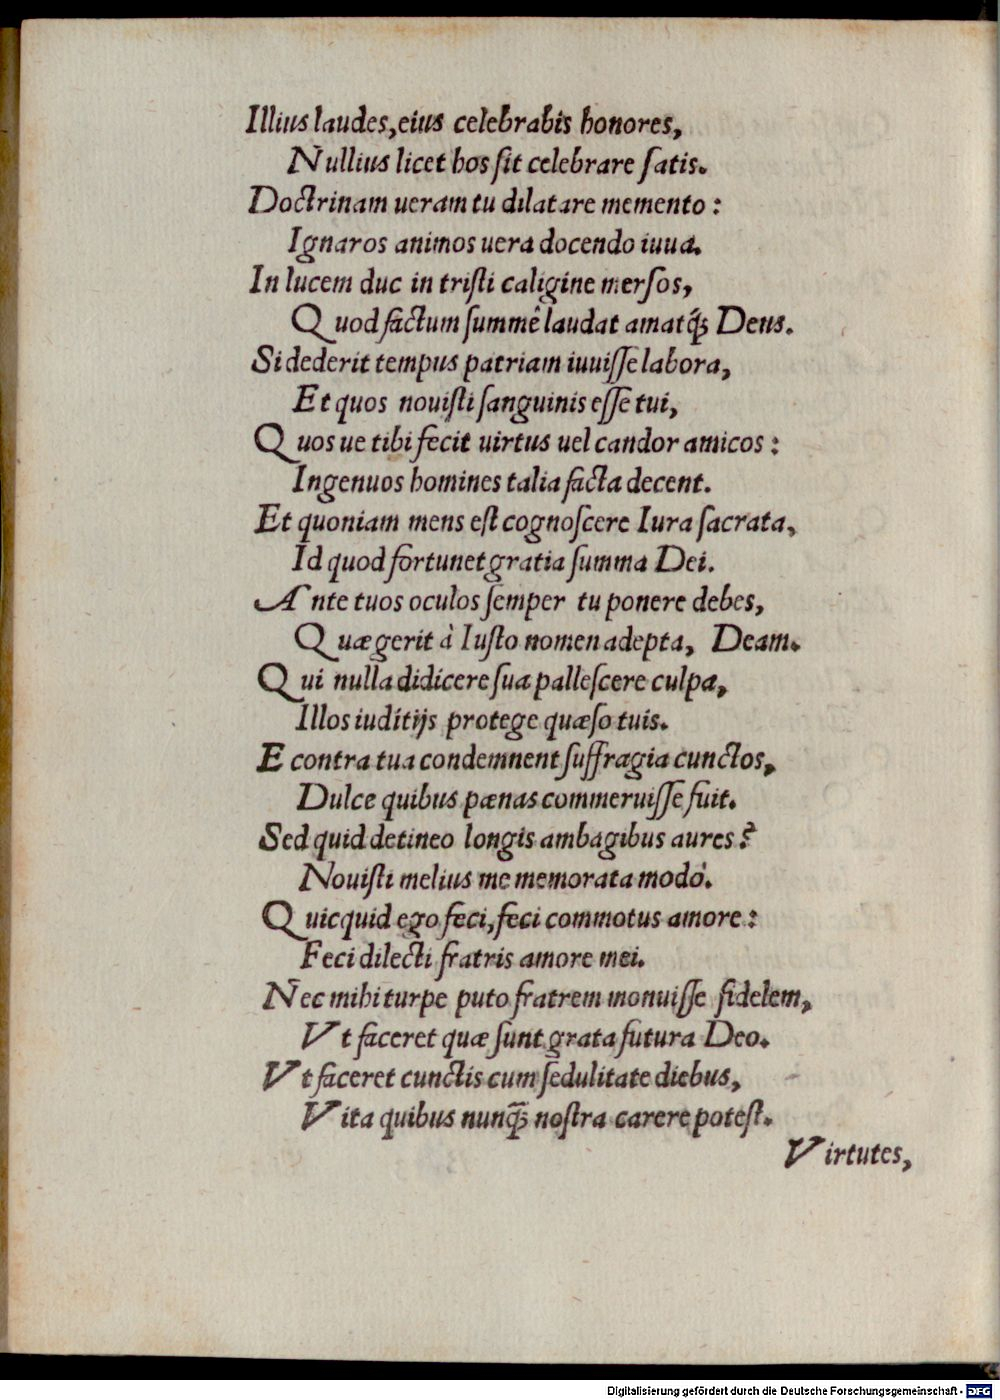 Illius laudes, eius celebrabis honores,
Nullius licet hos sit celebrare satis.
Doctrinam ueram tu dilatare memento:
Ignaros animos uera docendo iuua.
In lucem duc in tristi caligine mersos,
Quod factum summê laudat amatq́ꝫ Deus.
Si dederit tempus patriam iuuisse labora,
Et quos nouisti sanguinis esse tui,
Quos ue tibi fecit uirtus uel candor amicos:
Ingenuos homines talia facta decent.
Et quoniam mens est cognoscere Iura sacrata,
Id quod fortunet gratia summa Dei.
Ante tuos oculos semper tu ponere debes,
Quæ gerit à Iusto nomen adepta, Deam.
Qui nulla didicere sua pallescere culpa,
Illos iuditijs protege quæso tuis.
E contra tua condemnent suffragia cunctos,
Dulce quibus pænas commeruisse fuit.
Sed quid detineo longis ambagibus aures?
Nouisti melius me memorata modò.
Quicquid ego feci, feci commotus amore:
Feci dilecti fratris amore mei.
Nec mihi turpe puto fratrem monuisse fidelem,
Vt faceret quæ sunt grata futura Deo.
Vt faceret cunctis cum sedulitate diebus,
Vita quibus nunq̃ꝫ nostra carere potest.
Virtutes,
Digitalisierung gefördert durch die Deutsche Forschungsgemeinschaft - DFG